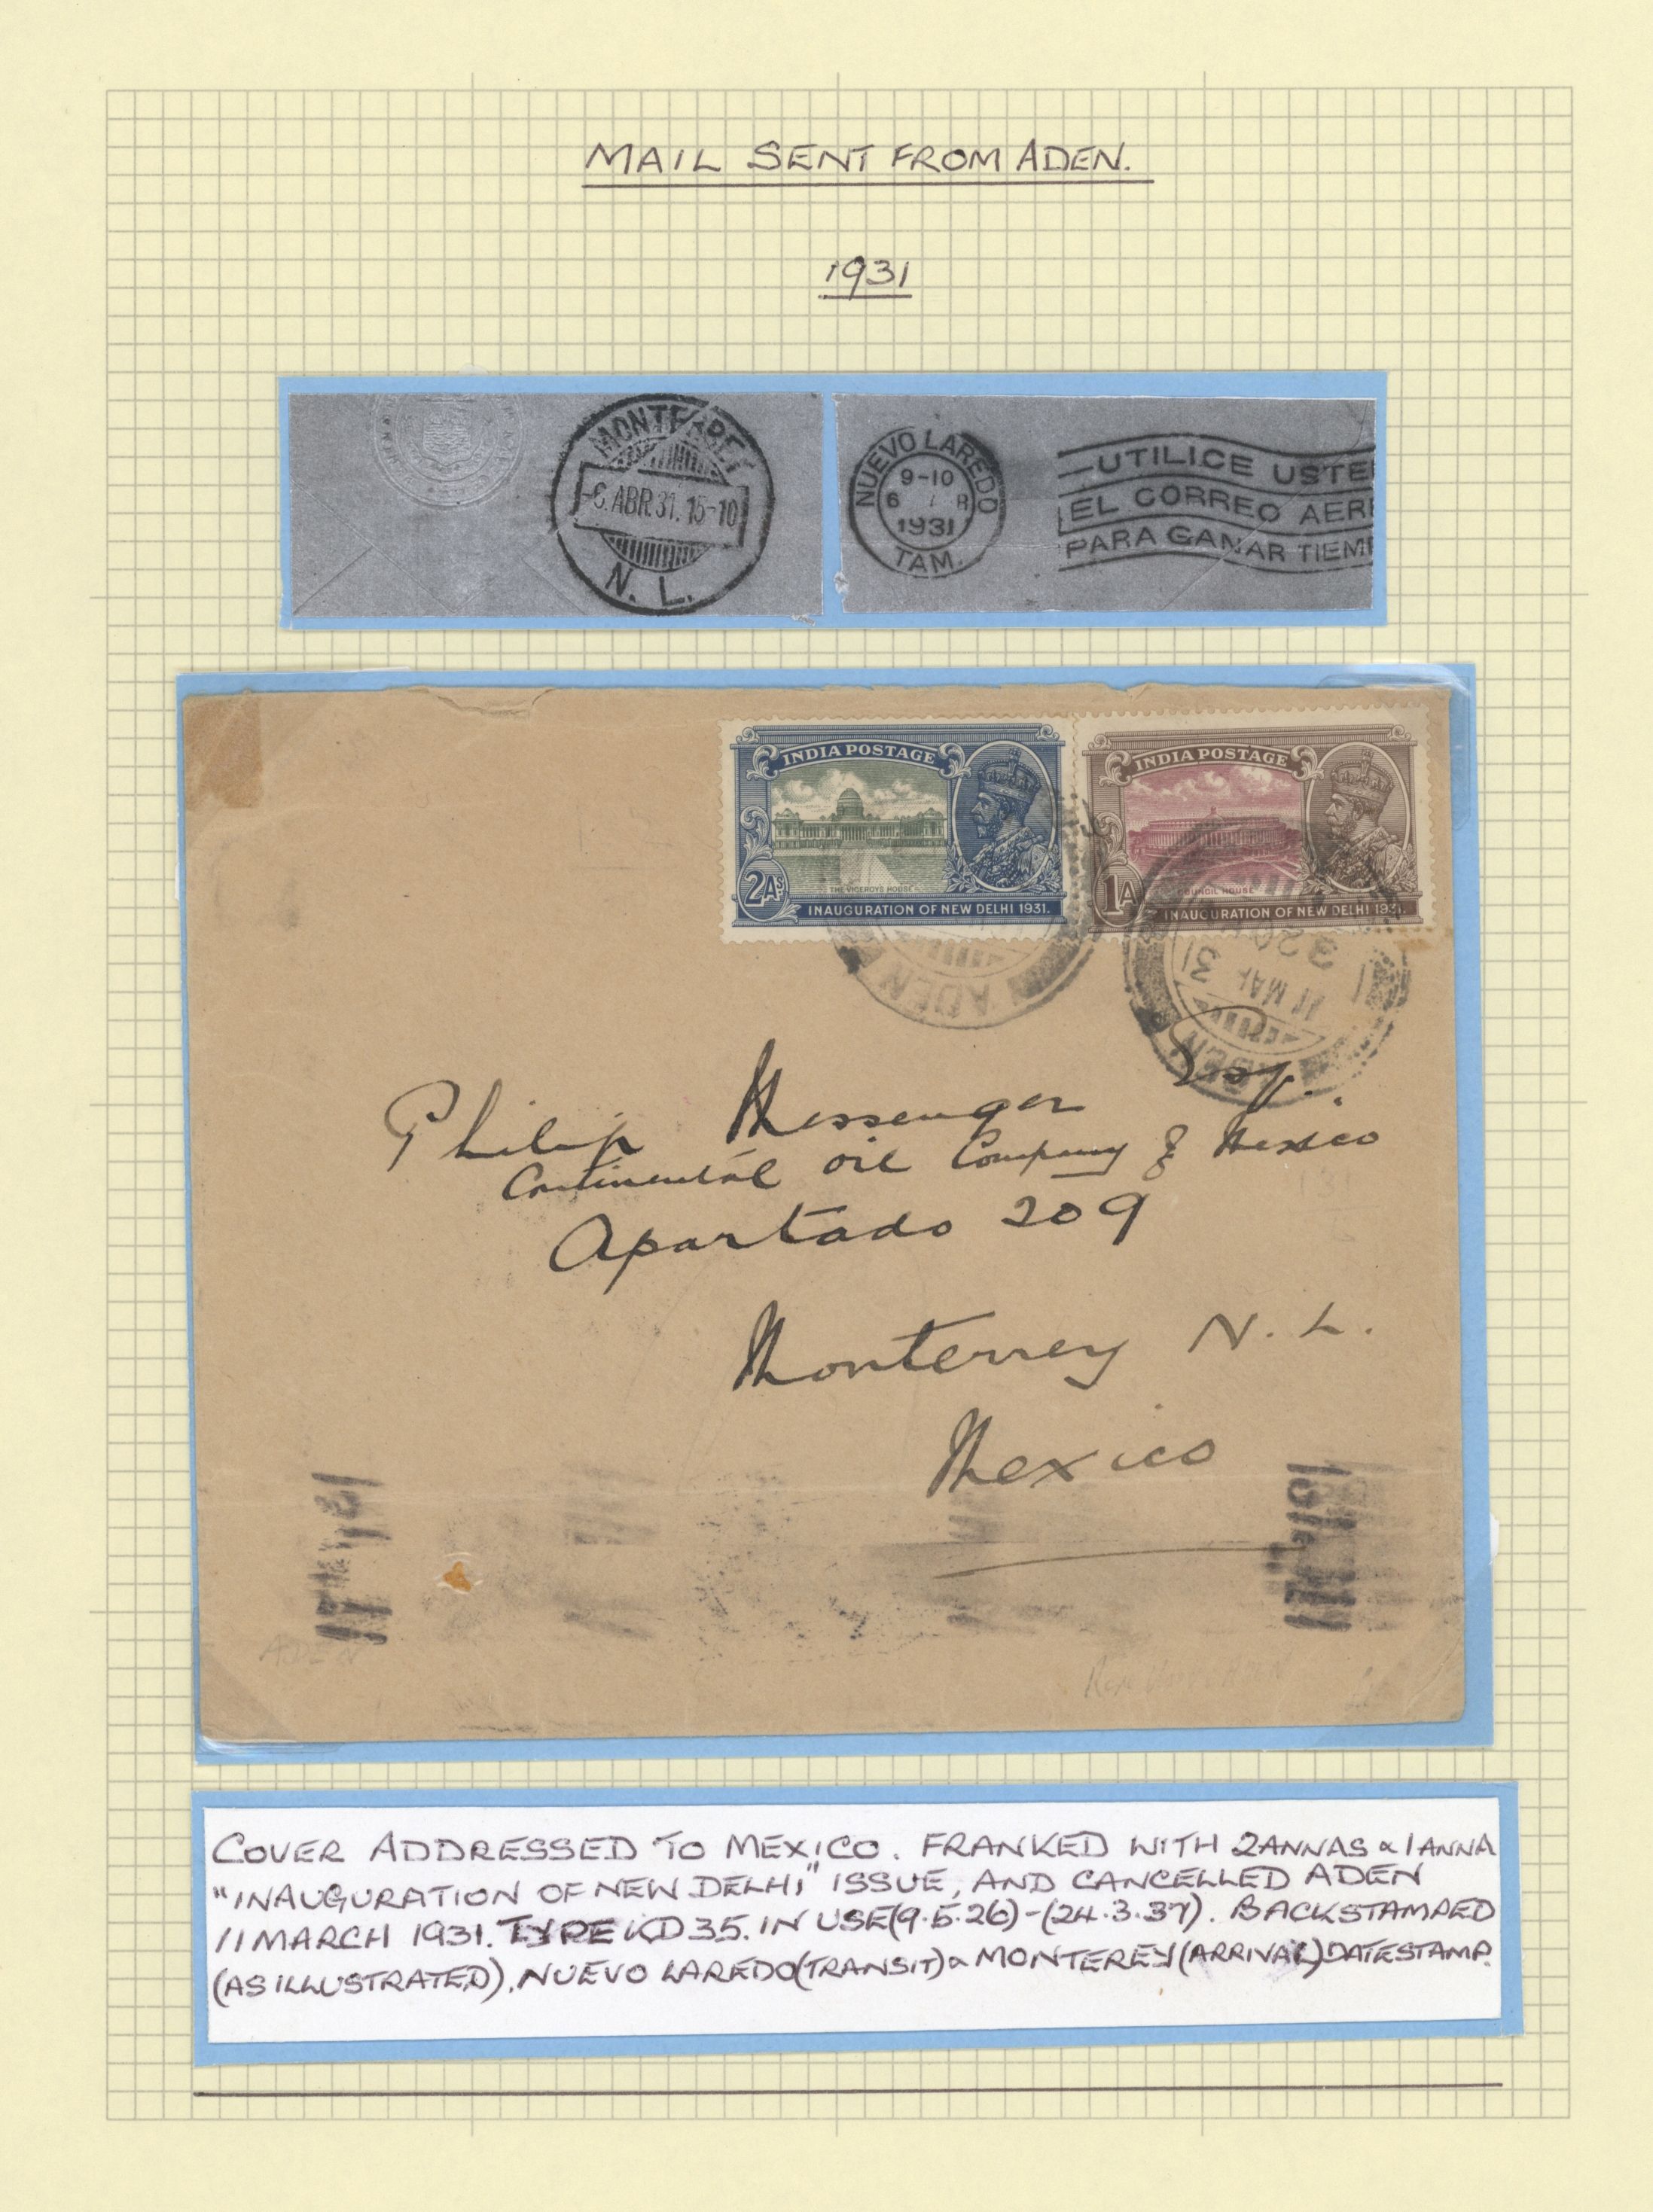 MAIL SENT FROM ADEN.
1931
MONTERREY
-6. ABR. 31. 15-10
N. L.
NUEVO LAREDO
9-10
6
1931
TAM.
UTILICE USTE
EL CORREO AERE
PARA GANAR TIEMP
INDIA POSTAGE
2As
THE VICEROYS HOUSE
INAUGURATION OF NEW DELHI 1931.
INDIA POSTAGE
1A
COUNCIL HOUSE
INAUGURATION OF NEW DELHI 1931.
ADEN
ADEN
11 MAR 31
3 20
Philip Messenger Esq.
Continental Oil Company of Mexico
Apartado 209
Monterrey N. L.
Mexico
ADEN
COVER ADDRESSED TO MEXICO. FRANKED WITH 2ANNAS & 1 ANNA
"INAUGURATION OF NEW DELHI" ISSUE, AND CANCELLED ADEN
11 MARCH 1931. TYPE KD 35. IN USE (9.5.26)-(24.3.37). BACKSTAMPED
(AS ILLUSTRATED). NUEVO LAREDO (TRANSIT) & MONTEREY (ARRIVAL) DATESTAMP.